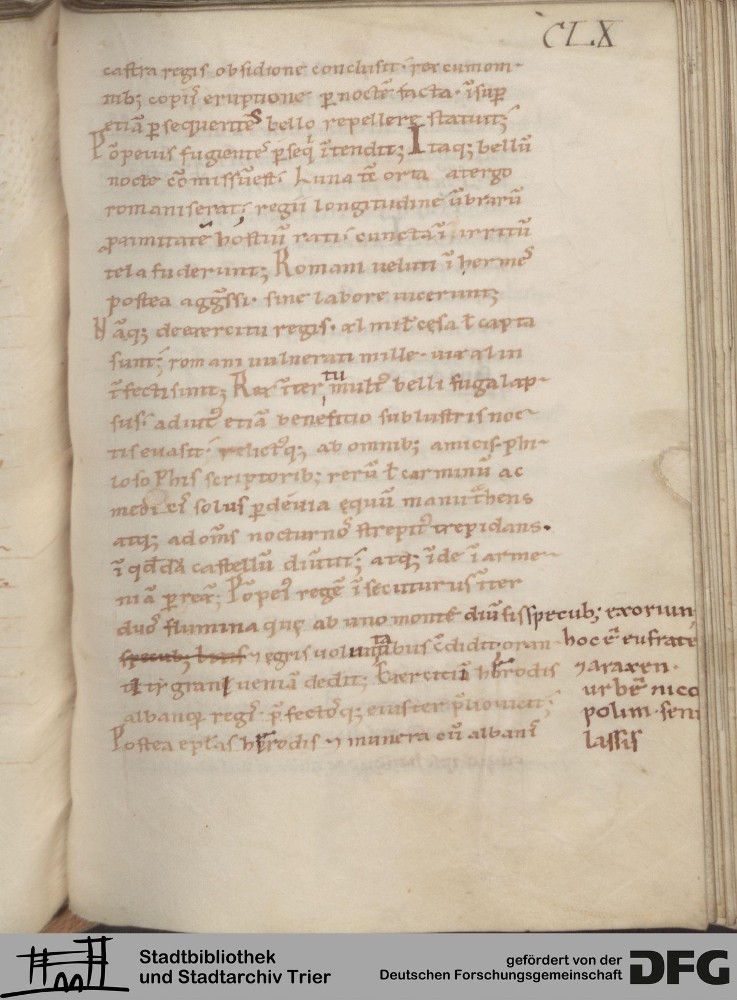 CLX
castra regis obsidione conclusit. rex cum om-
nib; copiis eruptione p nocte facta. insup
etiā p sequentes bello repellere statuit;
Pōpeius fugientes pseq̄ītendit; Itaq; bellū
nocte cōmissū est. Luna tē orta a tergo
romanis erat; regii longitudine ūbrarū
ppinquitatē hostiū rati. cuncta ī irritū
tela fuderunt; Romani ueluti ī hermes
postea aggssi. sine labore uicerunt;
Nāq; de exercitu regis. xl mił cęsa ł capta
sunt; romani uulnerati mille. uix xl in
īfecti sunt; Rex īter tumult belli fuga lap-
sus. adiut etiā beneficio sublustris noc-
tis euasit. relictq; ab omnib; amicis. phi-
losophis scriptorib; rerū ł carminū ac
medicis solus p deuia equū manu thens
atq; ad oms nocturnos strepit trepidans.
ī qddā castellū diūtit; atq; īde ī arme-
niā prex; Pōpei regē īsecuturus īter
duo flumina que ab uno monte diūsis specub; exoriun
hoc ē eufrate
7 araxen.
urbē nico
polim. seni
lassis
specub;
7 egris uoluntatibus cdidit; oran-
ti ueniā dedit; Exercitū horodis
albanoq regis. pfectosq; eius ter plio uicit;
Postea eplas horodis 7 munera cū albanis
Stadtbibliothek
und Stadtarchiv Trier
gefördert von der
Deutschen Forschungsgemeinschaft
DFG